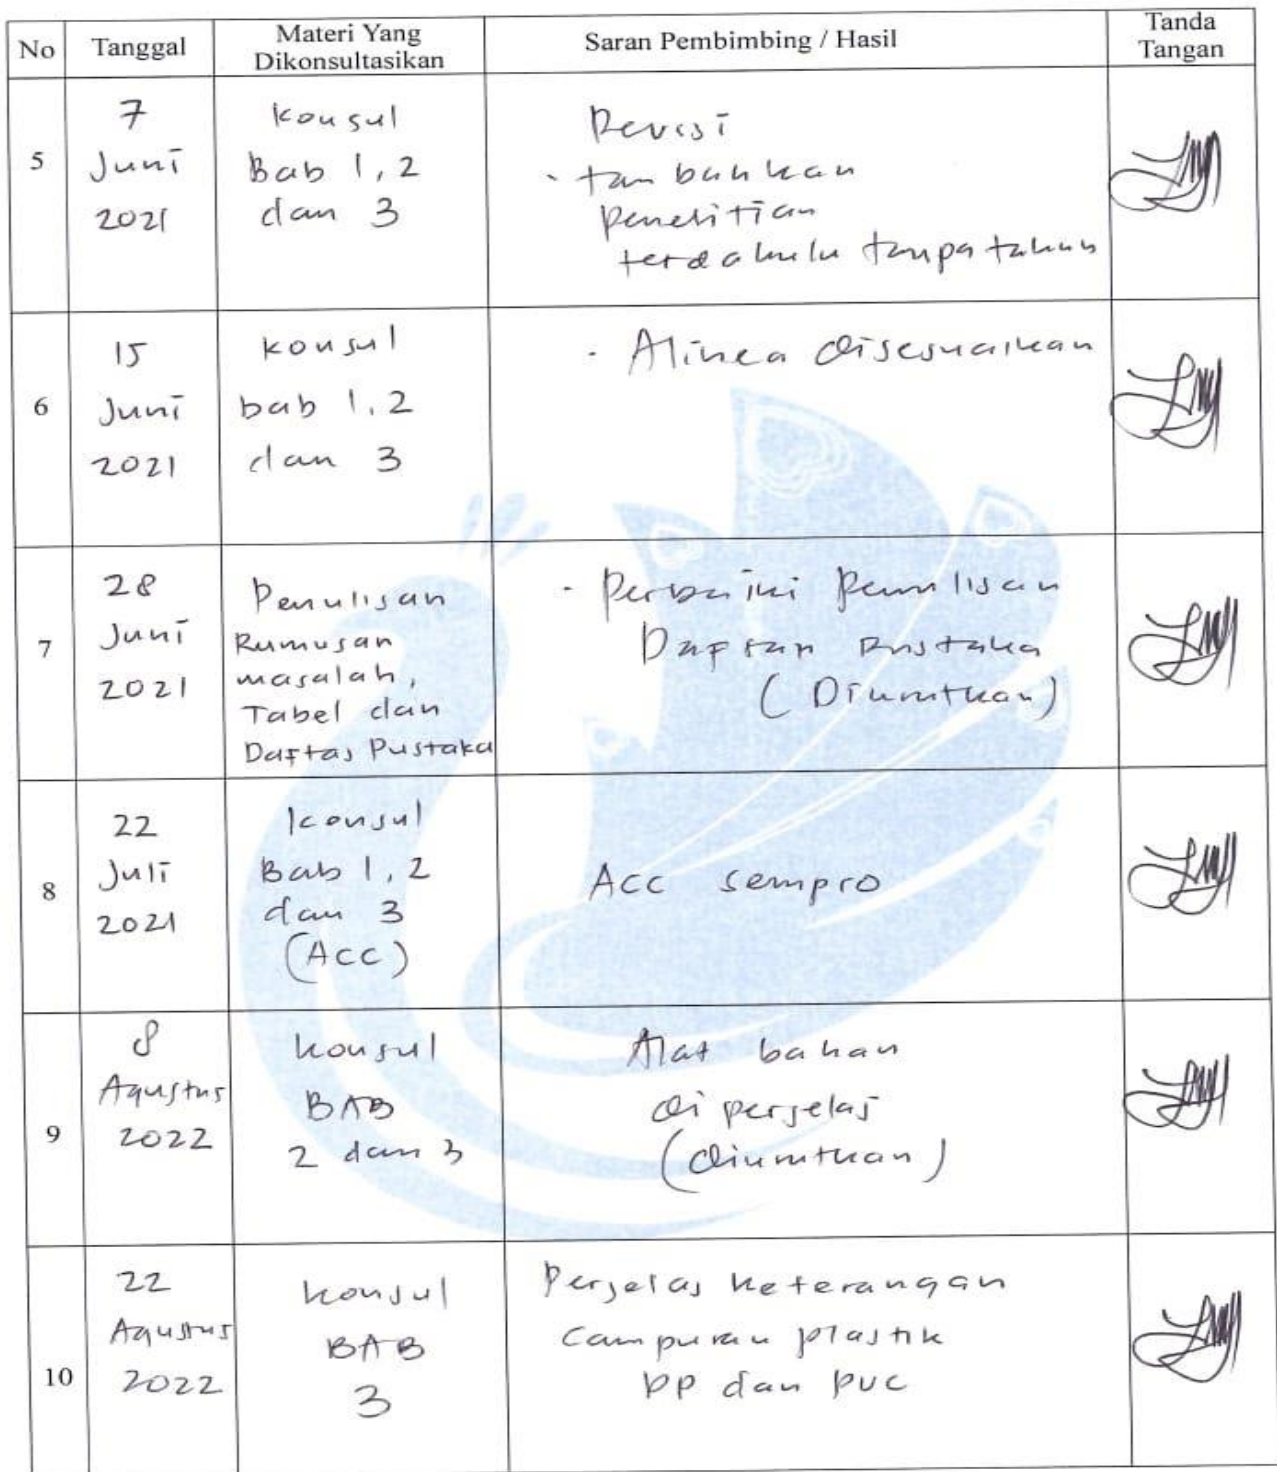 No
Tanggal
Materi Yang
Dikonsultasikan
Saran Pembimbing / Hasil
Tanda
Tangan
5
7
Juni
2021
Konsul
Bab 1, 2
dan 3
Revisi
- tambahkan
Penelitian
terdahulu tanpa tahun
6
15
Juni
2021
konsul
bab 1, 2
dan 3
- Alinea disesuaikan
7
28
Juni
2021
Penulisan
Rumusan
masalah,
Tabel dan
Daftas Pustaka
- Perbaiki Penulisan
Daftar Pustaka
(Diurutkan)
8
22
Juli
2021
konsul
Bab 1, 2
dan 3
(Acc)
Acc sempro
9
8
Agustus
2022
konsul
BAB
2 dan 3
Alat bahan
diperjelas
(diurutkan)
10
22
Agustus
2022
konsul
BAB
3
Perjelas keterangan
Campuran plastik
PP dan PVC